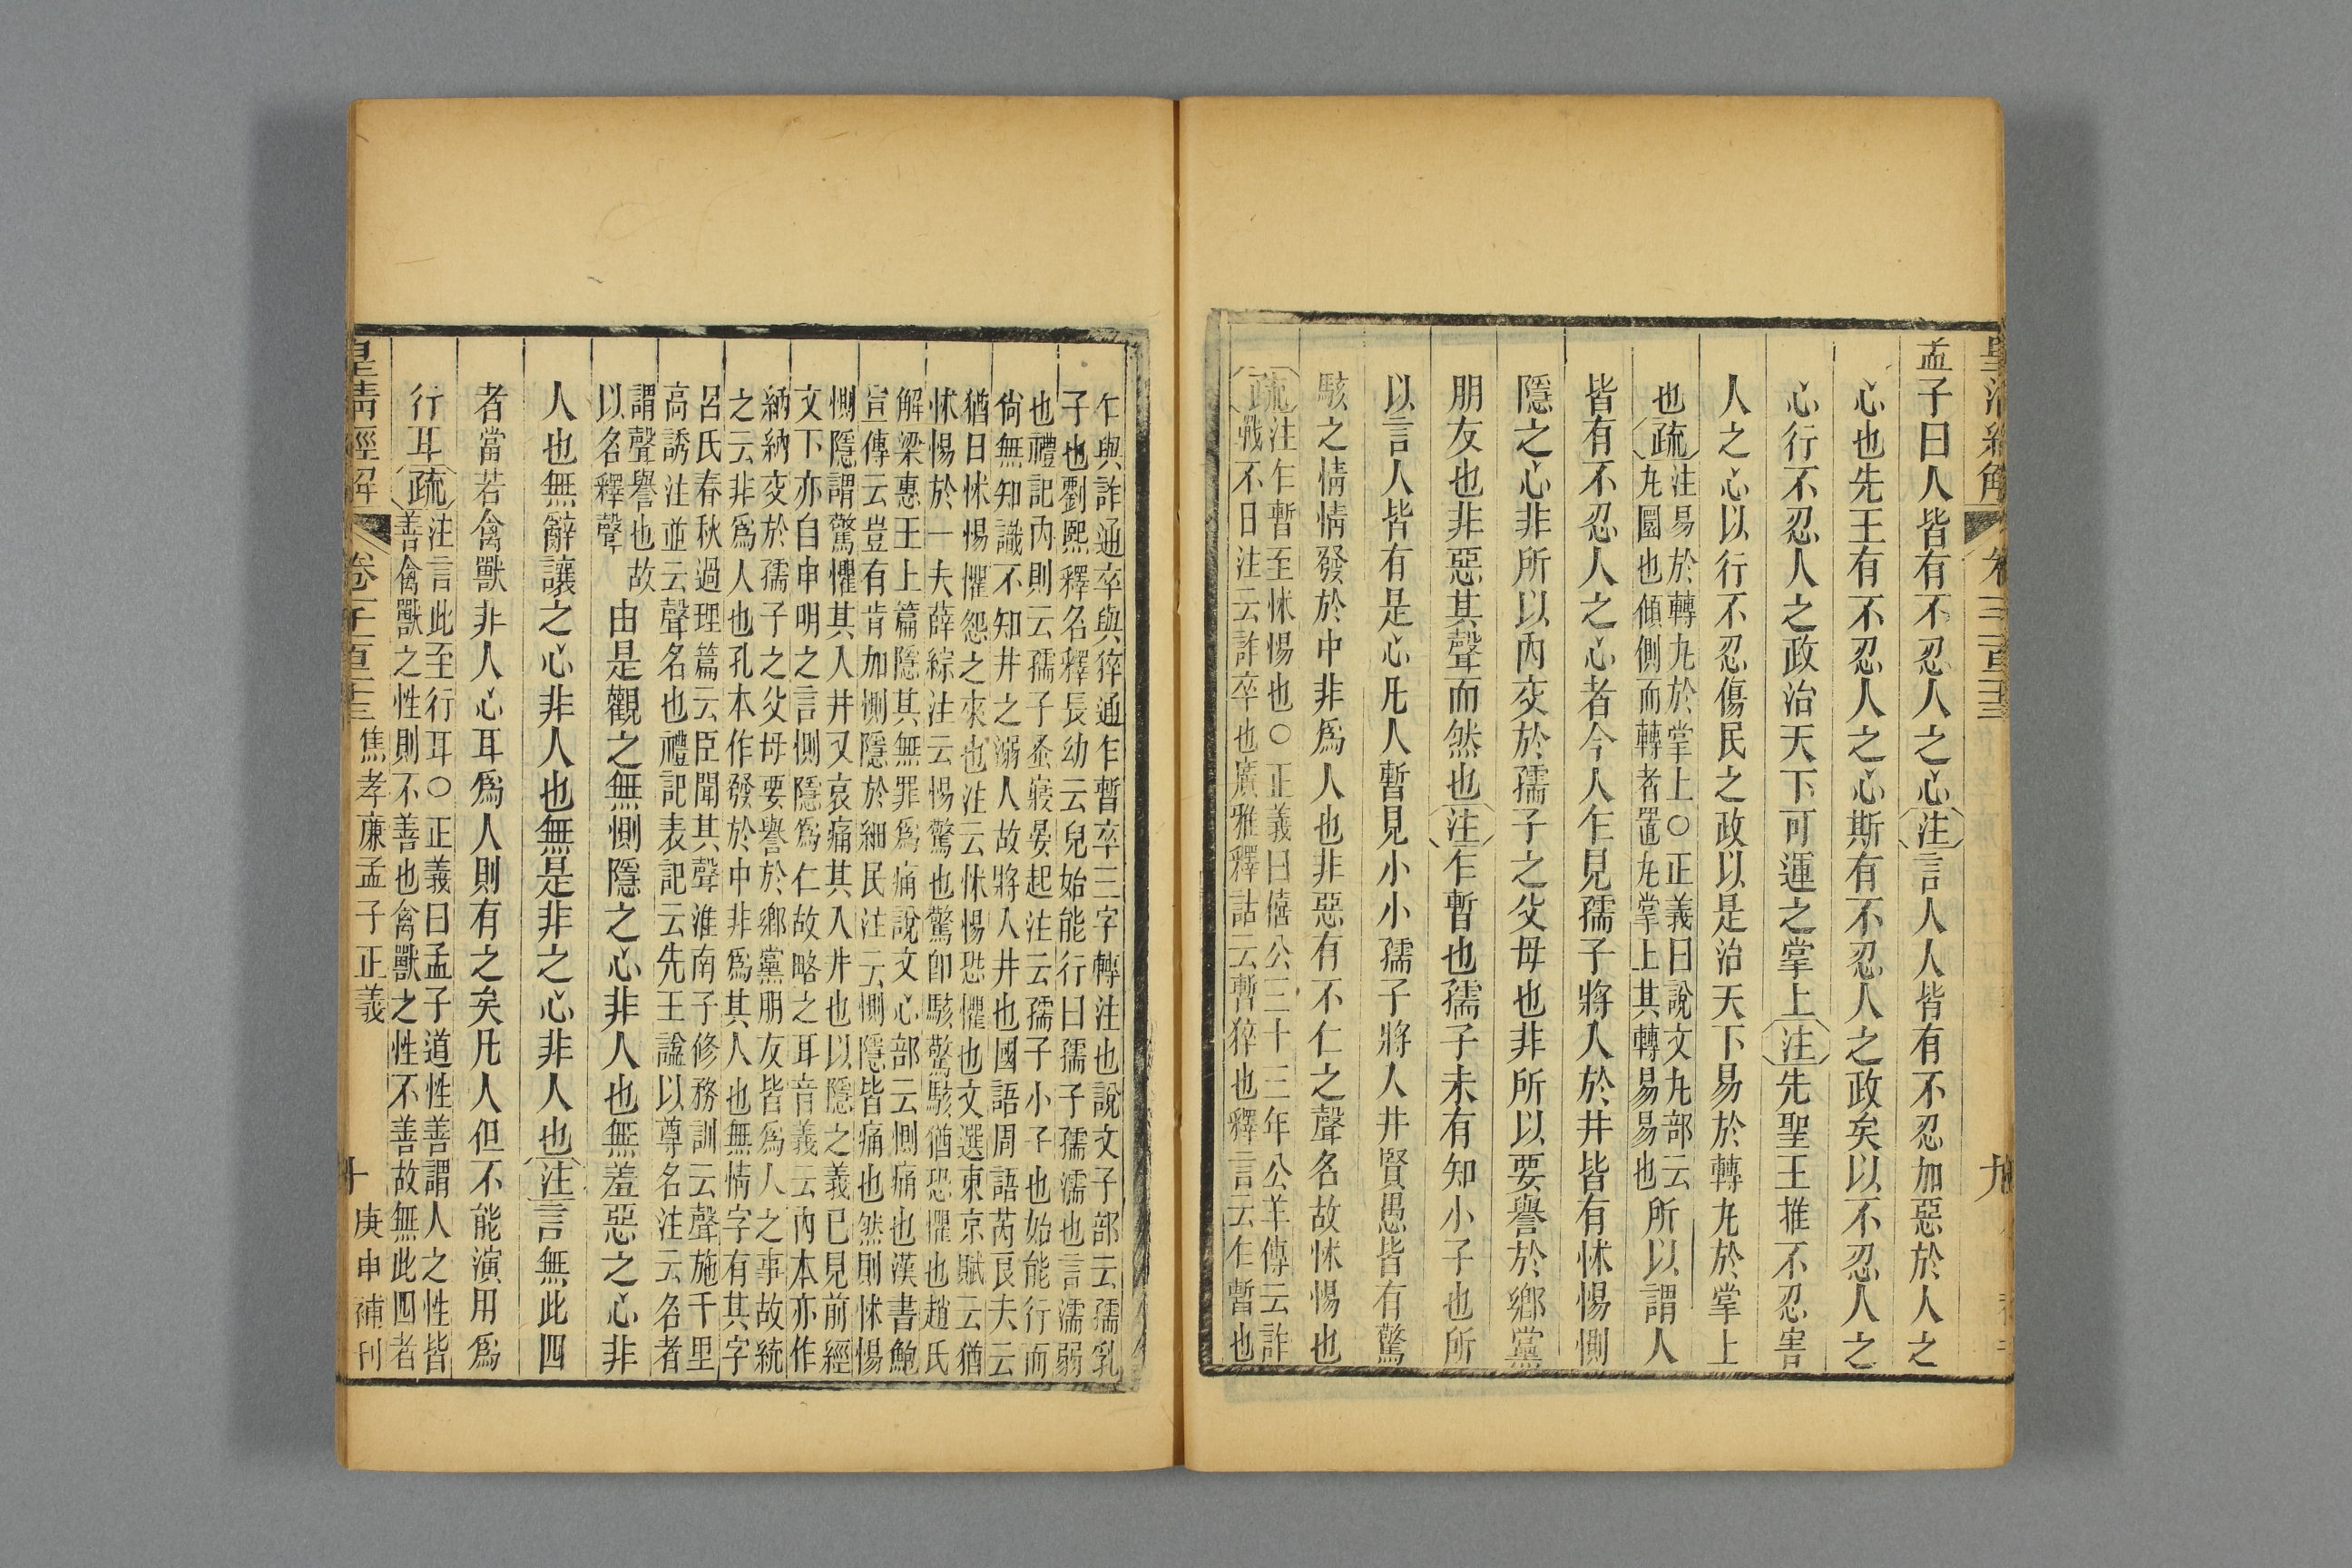 孟子曰人皆有不忍人之心注言人人皆有不忍加惡於人之
心也先王有不忍人之心斯有不忍人之政矣以不忍人之
心行不忍人之政治天下可運之掌上注先聖王推不忍害
人之心以行不忍傷民之政以是治天下易於轉丸於掌上
也疏
注易於轉丸於掌上○正義曰說文丸部云
丸圜也傾側而轉者置丸掌上其轉易易也
所以謂人
皆有不忍人之心者今人乍見孺子將入於井皆有怵惕惻
隱之心非所以內交於孺子之父母也非所以要譽於鄉黨
朋友也非惡其聲而然也注乍暫也孺子未有知小子也所
以言人皆有是心凡人暫見小小孺子將入井賢愚皆有驚
駭之情情發於中非爲人也非惡有不仁之聲名故怵惕也
疏
注乍暫至怵惕也○正義曰僖公三十三年公羊傳云詐
戰不日注云詐卒也廣雅釋詁云暫猝也釋言云乍暫也
九
乍與詐通卒與猝通乍暫卒三字轉注也說文子部云孺乳
子也劉熙釋名釋長幼云兒始能行曰孺子孺濡也言濡弱
也禮記內則云孺子蚤寢晏起注云孺子小子也始能行而
尙無知識不知井之溺人故將入井也國語周語芮良夫云
猶日怵惕懼怨之來也注云怵惕恐懼也文選東京賦云猶
怵惕於一夫薛綜注云惕驚也驚卽駭驚駭猶恐懼也趙氏
解梁惠王上篇隱其無罪爲痛說文心部云惻痛也漢書鮑
宣傳云豈有肯加惻隱於細民注云惻隱皆痛也然則怵惕
惻隱謂驚懼其入井又哀痛其入井也以隱之義已見前經
文下亦自申明之言惻隱爲仁故略之耳音義云內本亦作
納納交於孺子之父母要譽於鄉黨朋友皆爲人之事故統
之云非爲人也孔本作發於中非爲其人也無情字有其字
呂氏春秋過理篇云臣聞其聲淮南子修務訓云聲施千里
高誘注並云聲名也禮記表記云先王謚以尊名注云名者
謂聲譽也故
以名釋聲
由是觀之無惻隱之心非人也無羞惡之心非
人也無辭讓之心非人也無是非之心非人也注言無此四
者當若禽獸非人心耳爲人則有之矣凡人但不能演用爲
行耳疏
注言此至行耳○正義曰孟子道性善謂人之性皆
善禽獸之性則不善也禽獸之性不善故無此四者
皇清經解
卷千一百二十三
焦孝廉孟子正義
十
庚申補刊